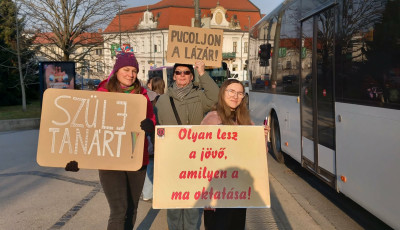 PUCOLJON
A LÁZÁR!
SZÜLE
TANÁRT!
Olyan lesz
a jövő,
amilyen a
ma oktatása!